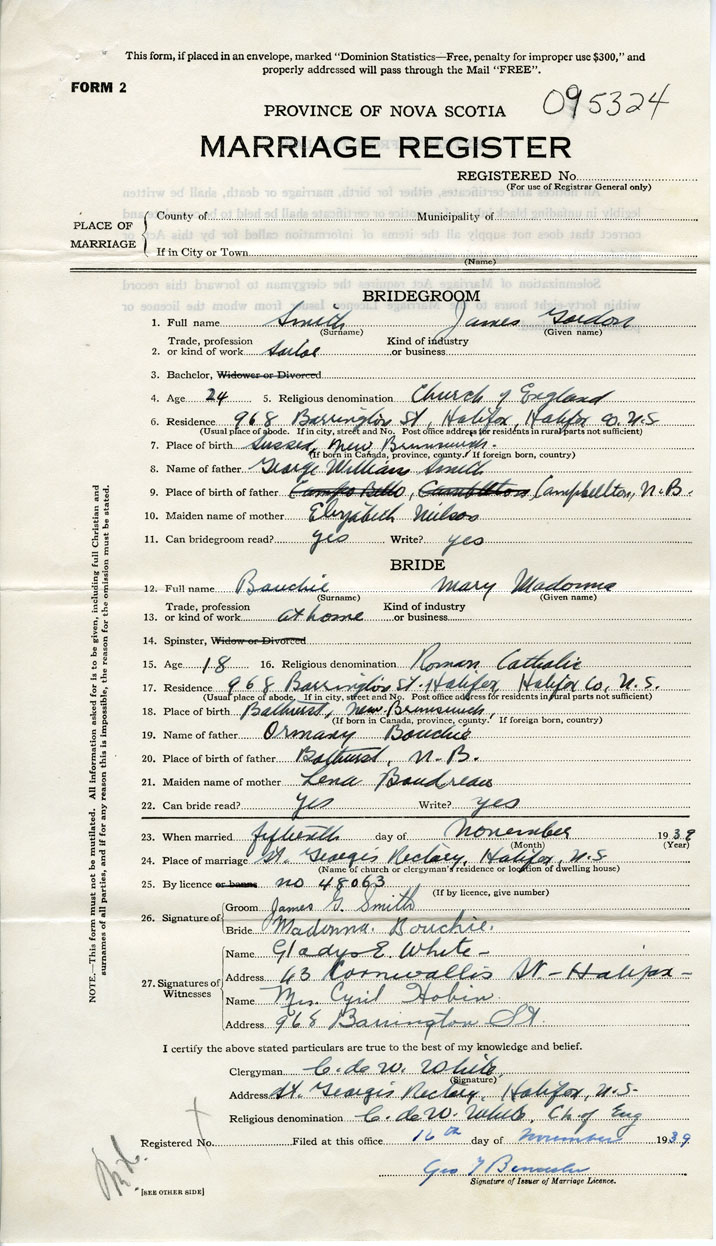 This form, if placed in an envelope, marked "Dominion Statistics—Free, penalty for improper use $300," and
properly addressed will pass through the Mail "FREE".
FORM 2
095324
PROVINCE OF NOVA SCOTIA
MARRIAGE REGISTER
REGISTERED No.
(For use of Registrar General only)
PLACE OF MARRIAGE
County of Municipality of
If in City or Town
(Name)
BRIDEGROOM
1. Full name Smith James Gordon
(Surname) (Given name)
Trade, profession Kind of industry
2. or kind of work or business
3. Bachelor, Widower or Divorced
4. Age 24 5. Religious denomination Church of England
6. Residence 968 Barrington St. Halifax, Halifax Co. N.S
(Usual place of abode. If in city, street and No. Post office address for residents in rural parts not sufficient)
7. Place of birth Sussex, New Brunswick.
(If born in Canada, province, county. If foreign born, country)
8. Name of father George William Smith
9. Place of father Campo Bello, Campbellton, Campbellton, N.B.
10. Maiden name of mother Elizabeth
11. Can bridegroom read? yes Write? yes
BRIDE
12. Full name Bouchie Mary Madonna
(Surname) (Given name)
Trade, profession Kind of industry
13. or kind of work at home or business
14. Spinster, Widow or Divorced
15. Age 18 16. Religious denomination Roman Catholic
17. Residence 968 Barrington St. Halifax, Halifax Co, N.S.
(Usual place of abode. If in city, street and No. Post office address for residents in rural parts not sufficient)
18. Place of birth Bathurst, New Brunswick
(If born in Canada, province, county. If foreign born, country)
19. Name of father Ormany Bouchie
20. Place of birth of father Bathurst, N.B.
21. Maiden name of mother Lena Boudreau
22. Can bride read? yes Write? yes
23. When married fifteenth day of November 1939
(Month) (Year)
24. Place of marriage St. George's Rectory, Halifax, N.S
(Name of church or clergyman's residence or location of dwelling house)
25. By licence or banns no 48063
(If by licence, give number)
26. Signature of
Groom James G. Smith
Bride Madonna Bouchie.
27. Signatures of Witnesses
Name Gladys E. White-
Address 63 Cornwallis St - Halifax -
Name Mrs. Cyril Hobin
Address 968 Barrington St.
I certify the above stated particulars are true to the best of my knowledge and belief.
Clergyman C. de W. White
(Signature)
Address St. George's Rectory, Halifax, N.S-
Religious denomination C. de W. White, Ch. of Eng
Registered No. Filed at this office 16th day of November 1939
Signature of Issuer of Marriage Licence.
[SEE OTHER SIDE]
NOTE.—This form must not be mutilated. All information asked for is to be given, including full Christian and
surnames of all parties, and if for any reason this is impossible, the reason for the omission must be stated.